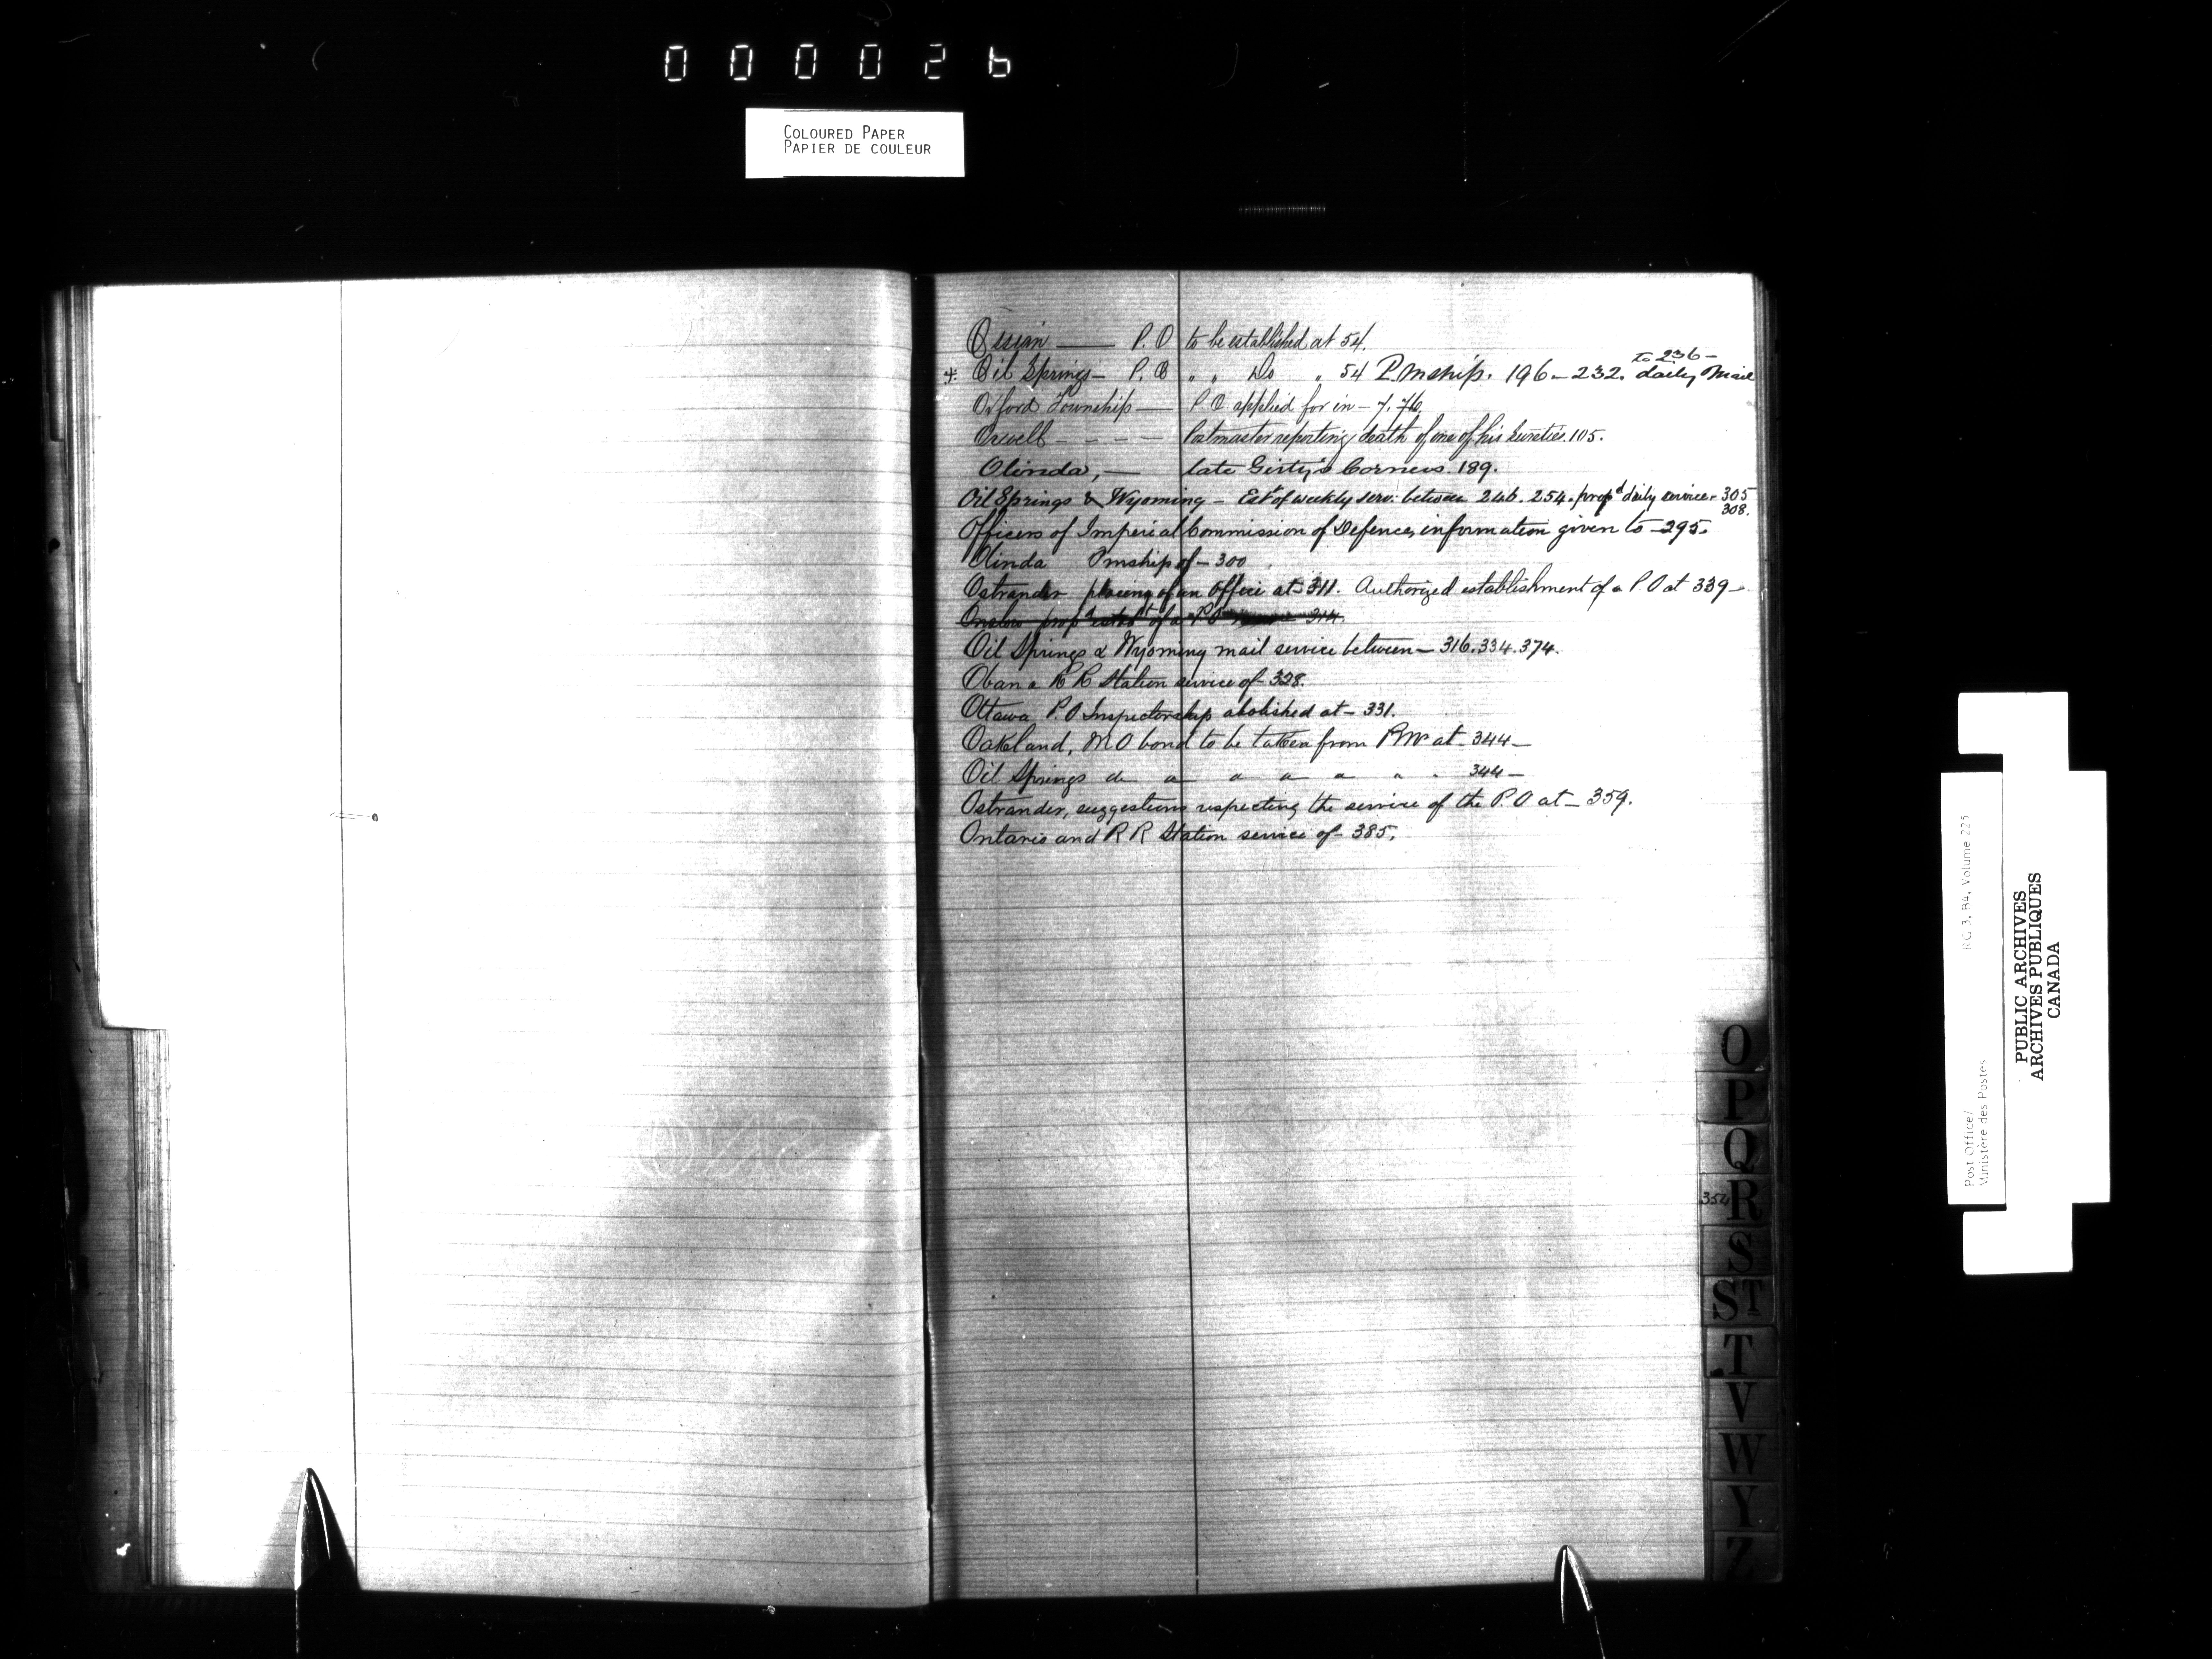 000026
COLOURED PAPER
PAPIER DE COULEUR
Ossian —— P. O to be established at 54.
to 236 –
+ Oil Springs – P. O " " Do " 54 P.mship. 196 – 232. daily Mail
Oxford Township — P O applied for in – 7. 76.
Orwell – – – – Postmaster reporting death of one of his sureties. 105.
Olinda, — late Girty's Corners. 189.
Oil Springs & Wyoming – Est of weekly serv: between 246. 254. propd daily service. 305
308.
Officers of Imperial Commission of Defence, information given to – 295.
Olinda Pmship of – 300
Ostrander placing of an Office at – 311. Authorized establishment of a P.O at 339 –
Onslow propd estabt of a P O 314.
Oil Springs & Wyoming mail service between – 316. 334. 374.
Oban a R R Station service of – 328.
Ottawa P.O Inspectorship abolished at – 331.
Oakland, MO bond to be taken from PMr at – 344 –
Oil Springs do " " " " " " 344 –
Ostrander, suggestions respecting the service of the P.O at – 359.
Ontario and R R Station service of – 385.
O
P
Q
354 R
S
ST
T
V
W
Y
Z
Post Office/ RG 3, B4, Volume 225
Ministère des Postes
PUBLIC ARCHIVES
ARCHIVES PUBLIQUES
CANADA